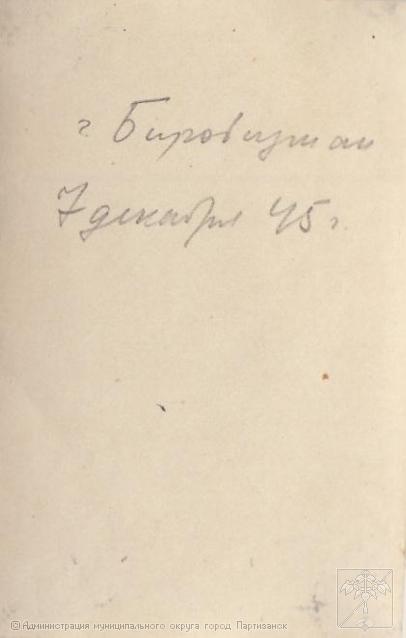 г Биробиджан
7 декабря 45 г.
© Администрация муниципального округа город Партизанск